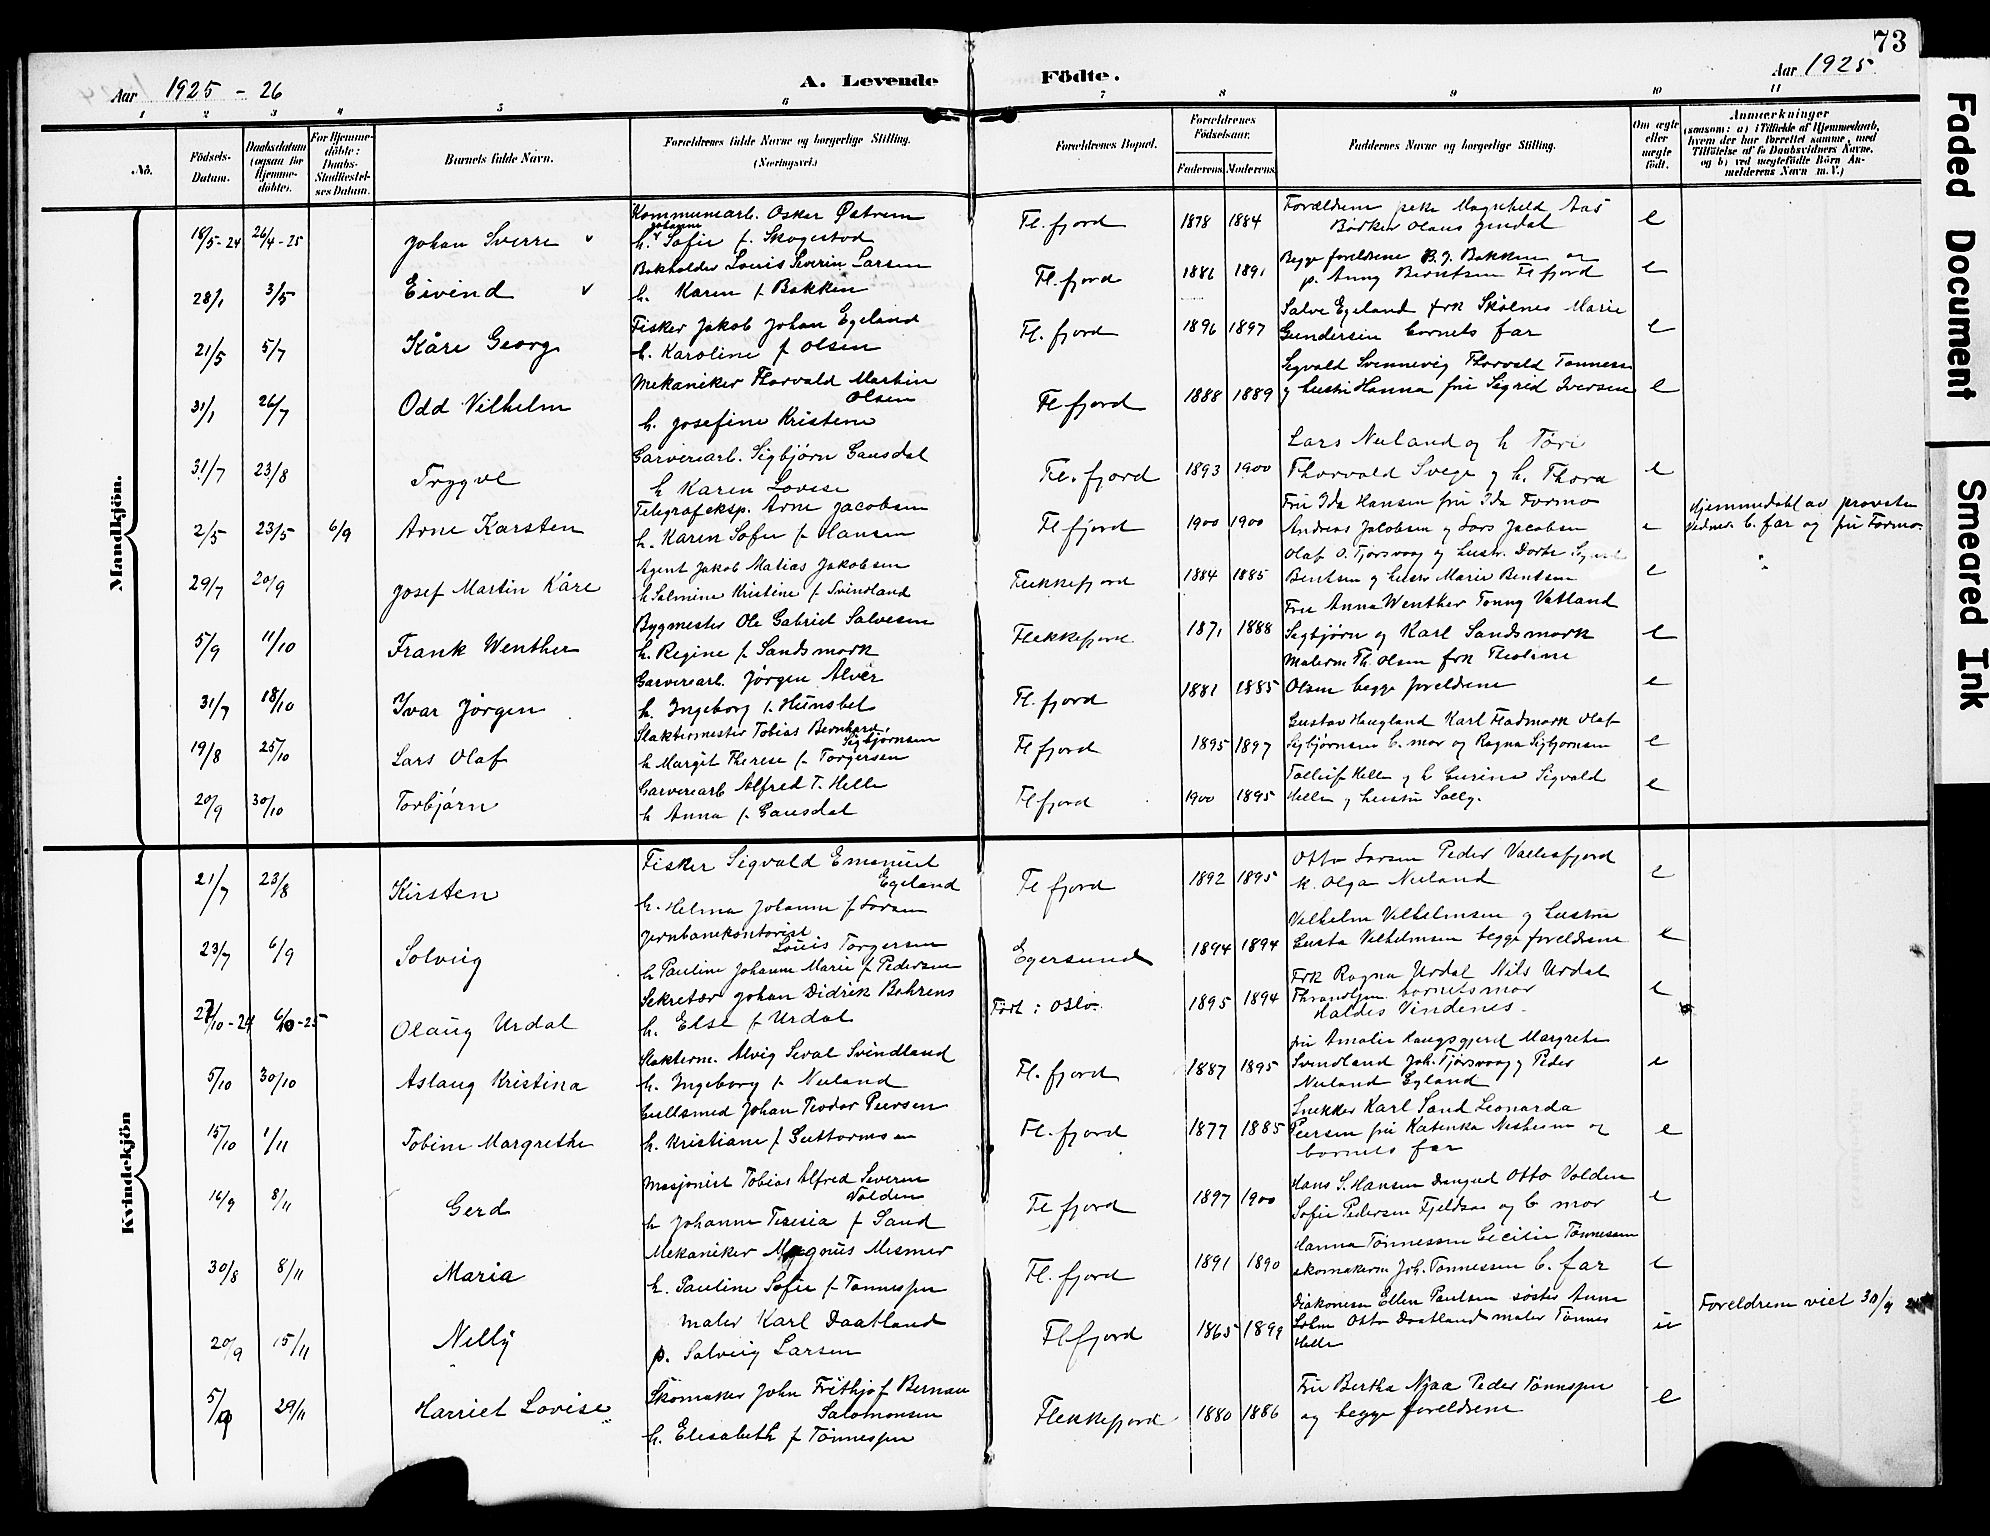 73
Aar 1925 - 26
A. Levende Födte.
Aar 1925
1 2 3 4 5 6 7 8 9 10 11
No.
Födsels-
Datum.
Daabsdatum
(ogsaa for
Hjemme-
döbte).
For Hjemme-
döbte:
Daabs-
Stadfæstel-
ses Datum.
Barnets fulde Navn.
Forældrenes fulde Navne og borgerlige Stilling.
(Næringsvei.)
Forældrenes Bopæl.
Forældrenes
Födselsaar.
Faderens Moderens
Faddernes Navne og borgerlige Stilling.
Om ægte
eller
uægte
födt.
Anmærkninger
(saasom: a) i Tilfælde af Hjemmedaab,
hvem der har forrettet samme, med
Tilföielse af to Daabsvidners Navne,
og b) ved uægtefödte Börn An-
melderens Navn m. V.)
Mandkjön.
18/5-24 26/4-25 Johan Sverre v
Kommunearb. Oskar Østrem
h. Johanne Sofie f. Skogestad
Fl. fjord 1878 1884
Forældrene peke Magnhild Aas
Bødker Olaus
e
28/1 3/5 Eivind v
Bokholder Louis Severin Larsen
h. Karen f. Bakken
Fl. fjord 1886 1891
Begge foreldrene B. J. Bakken og
p. Anny Berntsen Flfjord
e
21/5 5/7 Kåre Georg
Fisker Jakob Johan Egeland
h. Karoline f Olsen
Fl. fjord 1896 1897
Salve Egeland frk Skålnes Marie
Gundersen barnets far
e
31/1 26/7 Odd Vilhelm
Mekaniker Thorvald Martin
Olsen
h. Josefine Kristene
Fl fjord 1888 1889
Sigvald Svennevig Thorvald Tønness
og hustru Hanna fru Sigrid Iversen
e
31/7 23/8 Trygve
Garveriarb. Sigbjørn Gausdal
h Karen Lovise
Fl. fjord 1893 1900
Lars Nuland og h Tori
Thorvald Svege og h. Thora
e
2/5 23/5 6/9 Arne Karsten
Telegrafeksp. Arne Jacobsen
h. Karen Sofie f Hansen
Fl fjord 1900 1900
Fru Ida Hansen fru Ida Formo
Andreas Jacobsen og Lars Jacobsen
e
Hjemmedøbt av provsten
Vidner b. far og fru Formo.
29/7 20/9 Josef Martin Kåre
Agent Jakob Matias Jakobsen
h Salmine Kristine f Svindland
Flekkefjord 1884 1885
Olaf O. Tjorsvaag og hustr. Dorte
Bentsen og hustr Marie Bentsen
e
5/9 11/10 Frank Wenther
Bygmester Ole Gabriel Salvesen
h. Regine f Sandsmark
Flekkefjord 1871 1888
Fru Anna Wenther Tonny Vatland
Sigbjørn og Karl Sandsmark
e
31/7 18/10 Ivar Jørgen
Garveriarb. Jørgen Alver
h. Ingeborg f. Hunsbet
Fl. fjord 1881 1885
Malerm Th. Olsen frk Theoline
Olsen begge foreldrene
e
19/8 25/10 Lars Olaf
Slaktermester Tobias Bernhard
Sigbjørnsen
h Margit Therese f Torgersen
Fl fjord 1895 1897
Gustav Haugland Karl Fladmark Olaf
Sigbjørnsen b. mor og Ragna Sigbjørnsen
e
20/9 30/10 Torbjørn
Garveriarb Alfred T. Helle
h Anna f Gausdal
Fl fjord 1900 1895
Tolleif Helle og h Gurine Sigvald
Helle og hustru Solly.
e
Kvindekjön
21/7 23/8 Kirsten
Fisker Sigvald Emanuel
Egeland
h. Helma Johanne f Larsen
Fl fjord 1892 1895
Otto Larsen Peder
k. Olga Nuland
e
23/7 6/9 Solveig
Jernbanekontorist
Louis Torgersen
h Pauline Johanne Marie f Pedersen
Egersund 1894 1894
Vilhelm Vilhelmsen og hustru
Gusta Vilhelmsen begge foreldrene
e
27/10-24 6/10-25 Olaug Urdal
Sekretær Johan Didrik Bahrens
h. Else f Urdal
Født: Oslo. 1895 1894
Frk Ragna Urdal Nils Urdal
barnets mor
Haldis Vindenes.
e
5/10 30/10 Aslaug Kristina
Slakterm. Alvig Seval Svindland
h. Ingeborg f. Nuland
Fl. fjord 1887 1895
fru Amalie Haugsgjerd Margrete
Svindland Joh. Tjørsvaag og Peder
Nuland Egland
e
15/10 1/11 Tobine Margrethe
Gullsmed Johan Teodor Peersen
h. Kristiane f Guttormsen
Fl. fjord 1877 1885
Snekker Karl Sand Leonarda
Peersen fru Katinka Nesheim og
barnets far
e
16/9 8/11 Gerd
Masjonist Tobias Alfred Severin
Volden
h Johanne Teresia f Sand
Fl fjord 1897 1900
Hans S. Hansen Otto Volden
Sofie Pedersen Fjeldsaa og b mor
e
30/8 8/11 Maria
Mekaniker Magnus Mesmer
h. Pauline Sofie f Tønnessen
Fl. fjord 1891 1890
Hanna Tønnessen Cecilie Tønnessen
skomakerm Joh. Tønnessen b. far
e
20/9 15/11 Nelly
maler Karl Daatland
p. Solveig Larsen
Flfjord 1865 1899
Diakonisse Ellen Paulsen søster Anne
Otto Daatland maler Tønnes
Helle
u
Foreldrene viet 30/9
5/9 29/11 Harriet Lovise
Skomaker John Frithjof Bernau
Salomonsen
h. Elisabeth f Tønnessen
Flekkefjord 1880 1886
Fru Bertha Njaa Peder Tønnessen
og begge foreldrene
e
Faded Document
Smeared Ink